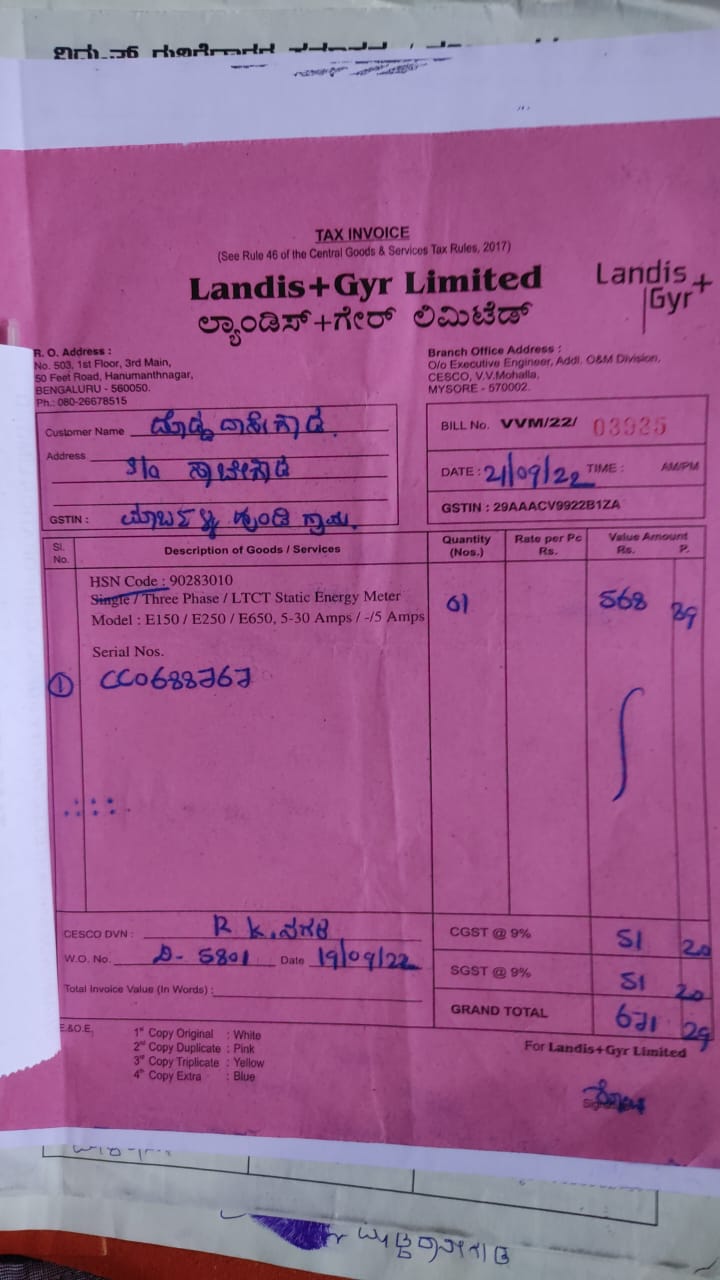 TAX INVOICE
(See Rule 46 of the Central Goods & Services Tax Rules, 2017)
Landis+Gyr Limited
ಲ್ಯಾಂಡಿಸ್+ಗೇರ್ ಲಿಮಿಟೆಡ್
Landis+
Gyr
R. O. Address :
No. 503, 1st Floor, 3rd Main,
50 Feet Road, Hanumanthnagar,
BENGALURU - 560050.
Ph.: 080-26678515
Branch Office Address :
O/o Executive Engineer, Addl. O&M Division,
CESCO, V.V.Mohalla,
MYSORE - 570002.
Customer Name
Address S/o
GSTIN :
BILL No. VVM/22/ 03925
DATE : 21/09/22 TIME : AM/PM
GSTIN : 29AAACV9922B1ZA
Sl. No. Description of Goods / Services Quantity (Nos.) Rate per Pc Rs. Value Amount Rs. P.
HSN Code : 90283010
Single / Three Phase / LTCT Static Energy Meter 01 568 89
Model : E150 / E250 / E650, 5-30 Amps / -/5 Amps
Serial Nos.
1 CC0688767
CESCO DVN : R K.ನಗರ
W.O. No. D- 5801 Date 19/09/22
Total Invoice Value (In Words) :
CGST @ 9% 51 20
SGST @ 9% 51 20
GRAND TOTAL 671 29
E.&O.E.
1st Copy Original : White
2nd Copy Duplicate : Pink
3rd Copy Triplicate : Yellow
4th Copy Extra : Blue
For Landis+Gyr Limited